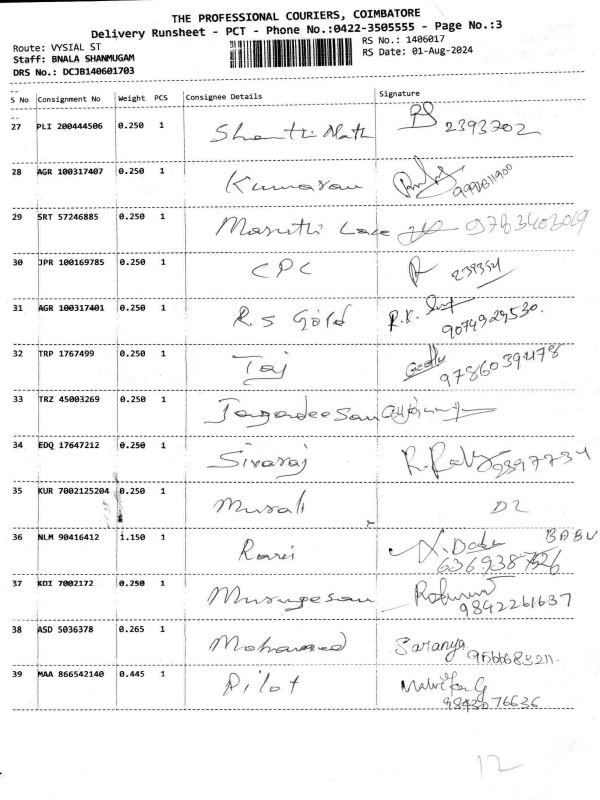 THE PROFESSIONAL COURIERS, COIMBATORE
Delivery Runsheet - PCT - Phone No.:0422-3505555 - Page No.:3
Route: VYSIAL ST
RS No.: 1406017
Staff: BNALA SHANMUGAM
RS Date: 01-Aug-2024
DRS No.: DCJB140601703
S No Consignment No Weight PCS Consignee Details Signature
27 PLI 200444506 0.250 1 Shanthi Nath 2393202
28 AGR 100317407 0.250 1 Kumaran
29 SRT 57246885 0.250 1 Maruthi Lace
30 JPR 100169785 0.250 1 CPC 239354
31 AGR 100317401 0.250 1 R.S Gold R.K.
9074929530.
32 TRP 1767499 0.250 1 Taj
33 TRZ 45003269 0.250 1
34 EDQ 17647212 0.250 1 Sivaraj
35 KUR 7002125204 0.250 1 Murali D2
36 NLM 90416412 1.150 1 BABU
37 KOI 7002172 0.250 1 Murugesan
9842261637
38 ASD 5036378 0.265 1 Mohamed Saranya
39 MAA 866542140 0.445 1 Pilot
12